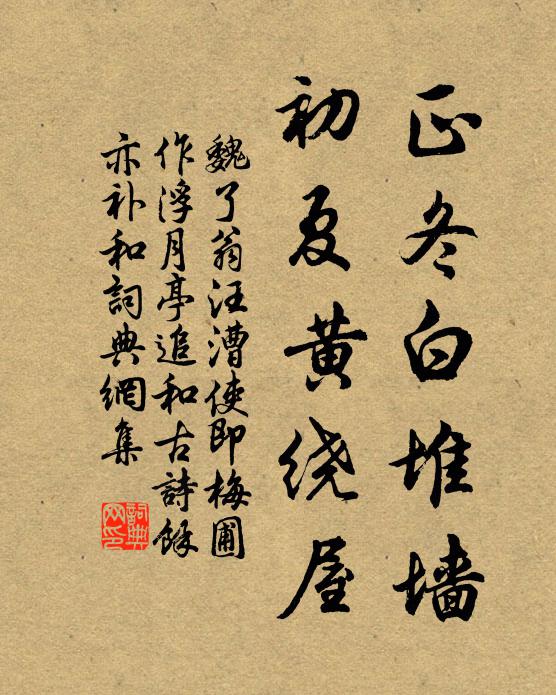 正冬白堆墙
初夏黄绕屋
魏了翁汪漕使即梅圃
作浮月亭追和古詩餘
亦补和詞典網集
詞典网印